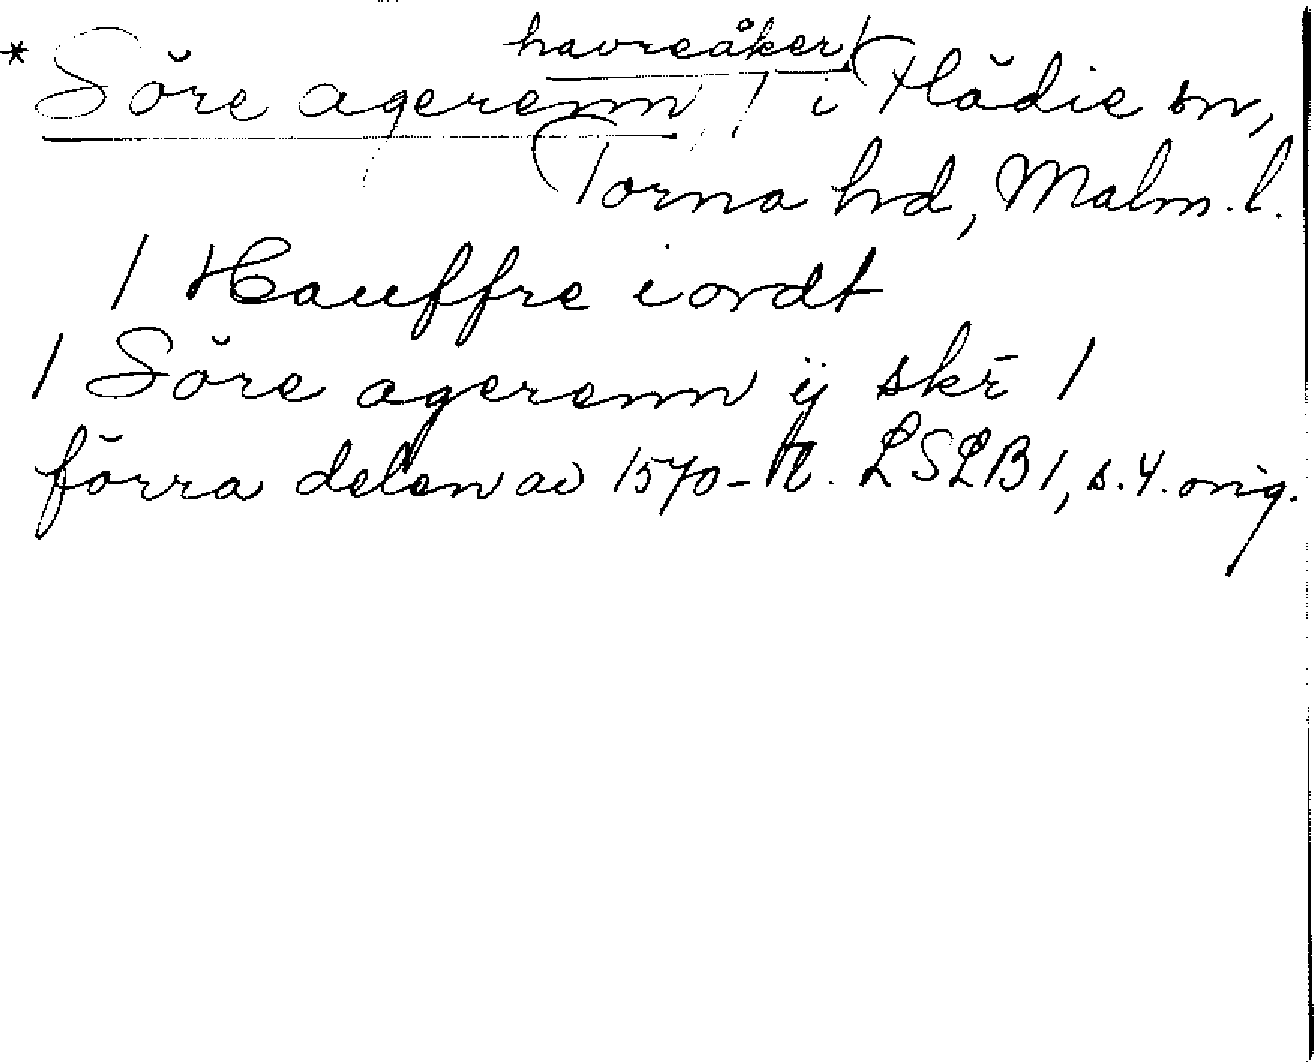 havreåker,
* Söre agerenn, i Flädie sn,
Torna hd, Malm. l.
/ Hauffre iordt
/ Söre agerenn ij skr̄ /
förra delen av 1570-t. LSLB1, s. 4. orig.